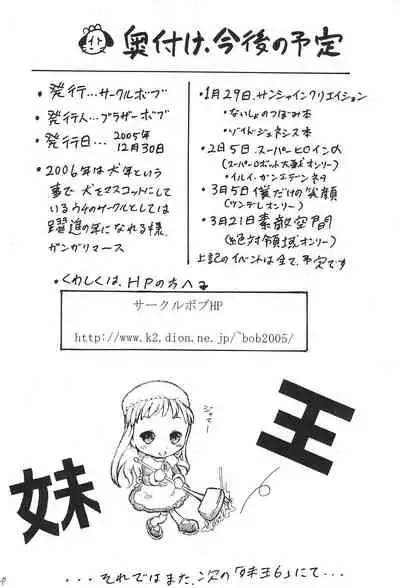 イト
奥付け、今後の予定
・発行…サークルボブ
・発行人…ブラザーボブ
・発行日…2005年
12月30日
・2006年は犬年という
事で犬をマスコットにして
いるウチのサークルとしては
躍進の年になれる様、
ガンガリマース
・1月29日、サンシャインクリエイション
・ないしょのつぼみ本
・ゾイドジェネシス本
・2月5日、スーパーヒロインの
(スーパーロボット大戦オンリー)
・イルイ・ガンエデンネタ
・3月5日僕だけの笑顔
(ツンデレオンリー)
・3月21日素敵空間
(絶対領域オンリー)
上記のイベントは全て、予定です
・くわしくは、HPの方へ
サークルボブHP
http://www.k2.dion.ne.jp/~bob2005/
妹王
・・・それではまた、次の「妹王6」にて・・・